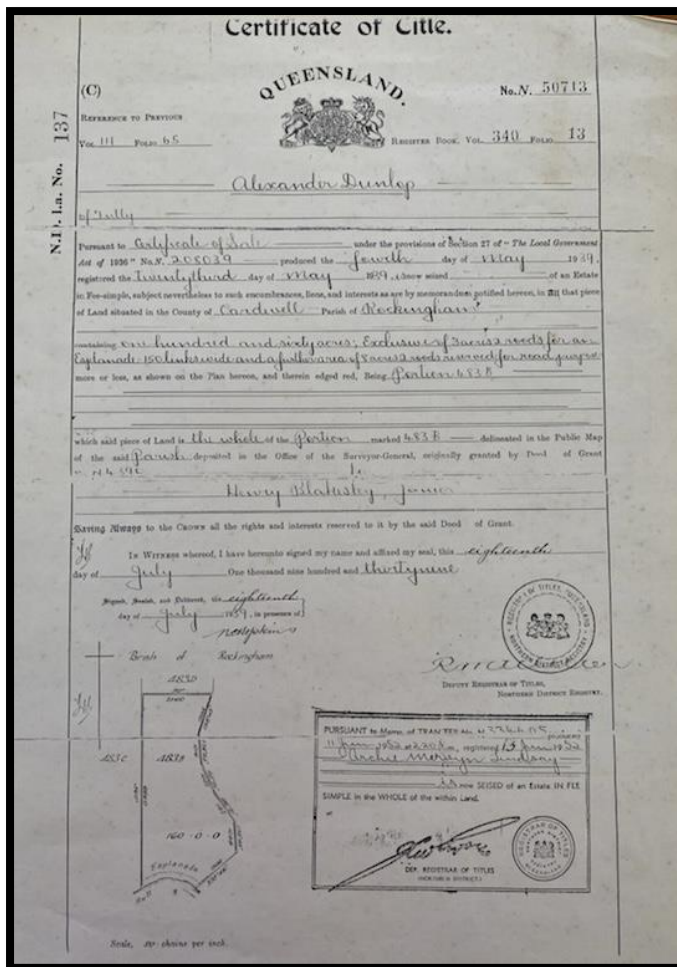 Certificate of Title.
(C)
QUEENSLAND.
No. N. 50713
REFERENCE TO PREVIOUS
VOL 111 FOLIO 65
REGISTER BOOK, VOL. 340 FOLIO 13
N.D. I.a. No. 137
Alexander Dunlop
of Tully
Pursuant to Certificate of Sale under the provisions of Section 27 of "The Local Government
Act of 1936" No. N. 208039 produced the fourth day of May 1939,
registered the Twentythird day of May 1939, is now seised of an Estate
in Fee-simple, subject nevertheless to such encumbrances, liens, and interests as are by memorandum notified hereon, in All that piece
of Land situated in the County of Cardwell Parish of Rockingham
containing One hundred and sixty acres; Exclusive of 3 acres 2 roods for an
Esplanade 150 links wide and a further area of 8 acres 2 roods reserved for road purposes
more or less, as shown on the Plan hereon, and therein edged red, Being Portion 483B
which said piece of Land is the whole of the Portion marked 483B delineated in the Public Map
of the said Parish deposited in the Office of the Surveyor-General, originally granted by Deed of Grant
Henry
Saving Always to the CROWN all the rights and interests reserved to it by the said Deed of Grant.
IN WITNESS whereof, I have hereunto signed my name and affixed my seal, this eighteenth
day of July One thousand nine hundred and thirtynine
Signed, Sealed, and Delivered, the eighteenth
day of July 1939, in presence of
REGISTRAR OF TITLES, QUEENSLAND
NORTHERN DISTRICT REGISTRY
DEPUTY REGISTRAR OF TITLES,
NORTHERN DISTRICT REGISTRY.
Parish of Rockingham
483D
483C
483B
160-0-0
Esplanade
Scale, chains per inch.
PURSUANT to Memo. of TRANSFER No. N produced
11 June 1952 at registered 13 June 1952
Archie Mervyn Lindsay
is now SEISED of an Estate IN FEE
SIMPLE in the WHOLE of the within Land.
DEP. REGISTRAR OF TITLES
(NORTHERN DISTRICT)
REGISTRAR OF TITLES